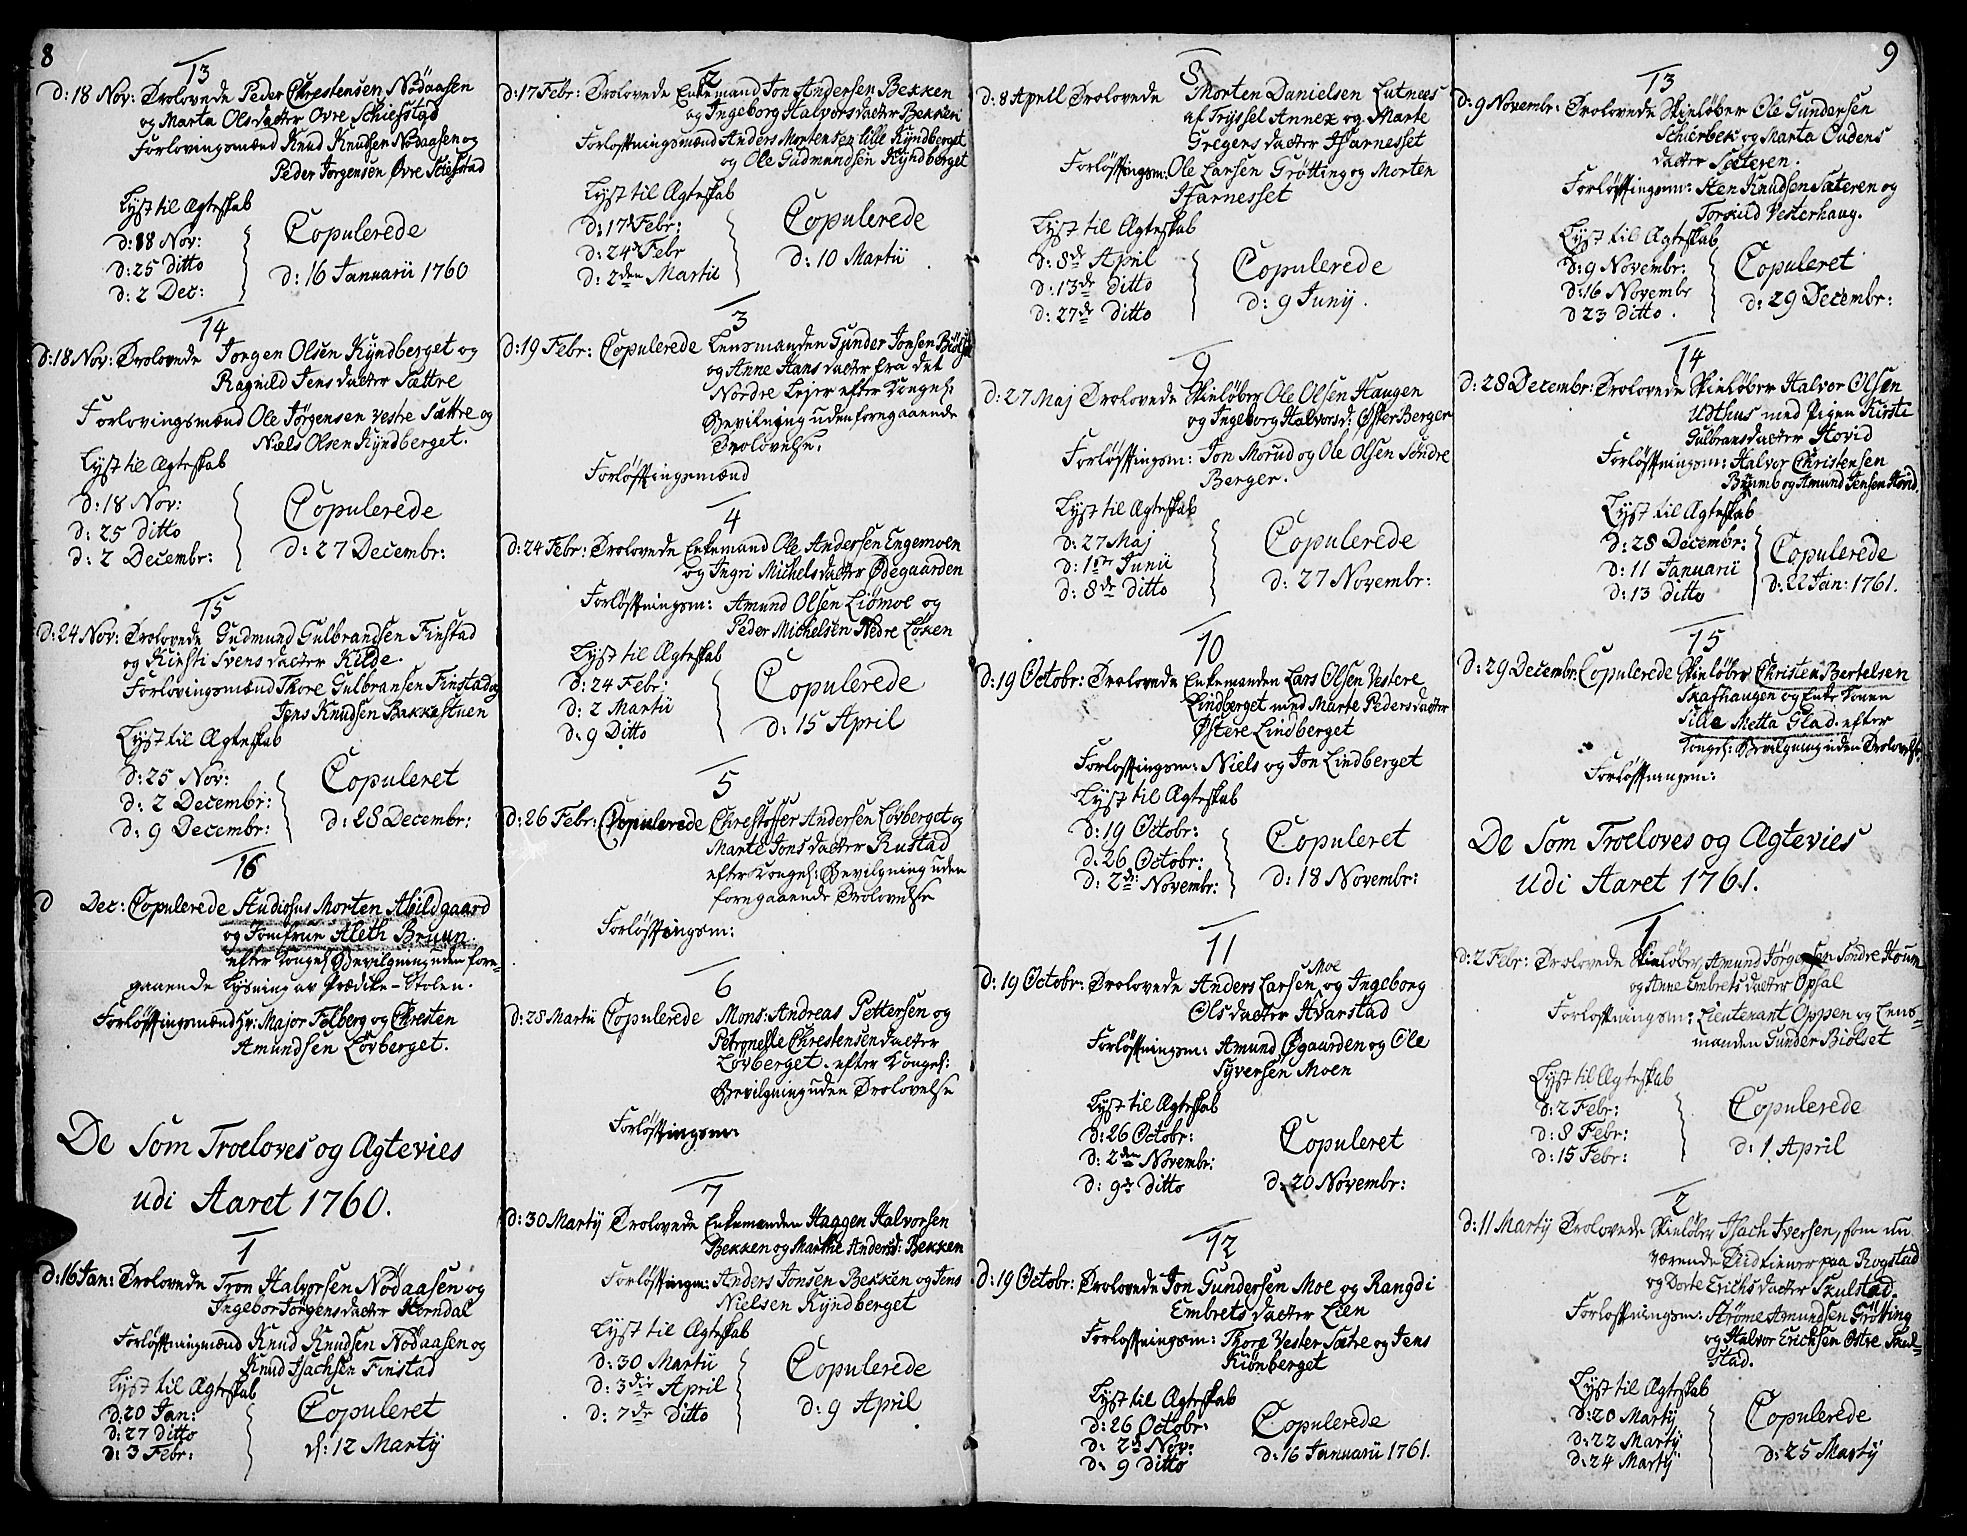 8
13
d: 18 Nov: Trolovede Peder Chrestensen Nödaasen
og Marta Olsdacter Ovre Schiefstad
Forlovingsmænd Knud Knudsen Nödaasen og
Peder Jörgensen Øvre Schefstad
Lyst til Ægteskab
d: 18 Nov:
d: 25 ditto
d: 2 Dec:
Copulerede
d: 16 Januarii 1760
14
d: 18 Nov: Trolovede Jörgen Olsen Kyndberget og
Ragnild Jens dacter Sættre
Forlovingsmænd Ole Jörgensen vestre Sættre og
Næls Olsen Kyndberget.
Lyst til Ægteskab
d: 18 Nov:
d: 25 ditto
d: 2 Decembr:
Copulerede
d: 27 Decembr:
15
d: 24 Nov: Trolovede Gudmund Gulbrandsen Finstad
og Kirsti Svens dacter Kilde.
Forlovingsmænd Thore Gulbransen Finstad og
Jens Knudsen Bakkestuen
Lyst til Ægteskab
d: 25 Nov:
d: 2 Decembr:
d: 9 Decembr:
Copuleret
d: 28 Decembr:
16
d Dec: Copulerede Studiosus Morten Abildgaard
og Jomfrue Aleth Bruun
efter Kongel: Bevilgning uden fore-
gaaende Lysning av Prædike-Stolen.
Forløftingsmænd Hr: Major Felberg og Chresten
Amundsen Lövberget.
De Som Troeloves og Ægtevies
udi Aaret 1760.
1
d: 16 Jan: Trolovede Tron Halvorsen Nödaasen og
Ingebor Jörgens dacter Horndal
Forløftningmænd Knud Knudsen Nödaasen og
Knud Jsachsen Finstad
Lyst til Ægteskab
d: 20 Jan:
d: 27 ditto
d: 3 Febr:
Copuleret
d: 12 Martÿ
2
d: 17 Febr: Trolovede Enkemand Jon Andersen Bekken
og Ingeborg Halvors dacter Bekken
Forløftningsmænd Anders Mortensen lille Kyndberget
og Ole Gudmundsen Kyndberget
Lyst til Ægteskab
d: 17 Febr:
d: 24 Febr
d: 2den Martii
Copulerede
d: 10 Martii
3
d: 19 Febr: Copulerede Lensmanden Gunder Jonsen
og Anne Hans dacter fra det
Nordre Lejer efter Kongel:
Bevilning uden foregaaende
Trolovelse.
Forløftingsmænd
4
d: 24 Febr: Trolovede Enkemand Ole Andersen Engemoen
og Ingri Michels dacter Ødegaarden
Forløftningsm: Amund Olsen Liömoe og
Peder Michelsen Nedre Löken
Lyst til Ægteskab
d: 24 Febr:
d: 2 Martii
d: 9 Ditto
Copulerede
d: 15 April
5
d: 26 Febr: Copulerede Chrestoffer Andersen Lövberget og
Marte Jons dacter Rustad
efter Kongel: Bevilgning uden
foregaaende Trolovelse
Forløftingsm:
6
d: 28 Martii Copulerede Mons: Andreas Pettersen og
Petronelle Chrestensen dacter
Lövberget. efter Kongel:
Bevilgning uden Trolovelse
Forløftningsm:
7
d: 30 Martÿ Trolovede Enkemanden Haggen Halvorsen
Bekken og Marthe Andersd: Bekken
Forløftningm: Anders Jonsen Bekken og Jens
Nielsen Kyndberget
Lyst til Ægteskab
d: 30 Martii
d: 3die April
d: 7de ditto
Copulerede
d: 9 April
8
d: 8 Aprill Trolovede Morten Danielsen Lutnees
af Tryssel Annex og Marte
Gregers dacter Hiarnesset
Forløftingsm: Ole Larsen Gröttting og Morten
Hiarnesset
Lyst til Ægteskab
d: 8de April
d: 13de ditto
d: 27de ditto
Copulerede
d: 9 Junÿ.
9
d: 27 Maj Trolovede Skieløber Ole Olsen Haugen
og Ingeborg Halvorsd: Øster Berger
Forløftingsm: Jon Morud og Ole Olsen Söndre
Berger.
Lyst til Ægteskab
d: 27 Maj
d: 1ste Junii
d: 8de ditto
Copulerede
d: 27 Novembr:
10
d: 19 Octobr: Trolovede Enkemanden Lars Olsen Vestere
Lindberget med Marte Peders dacter
Østere Lindberget
Forløftingsm: Niels og Jon Lindberget
Lyst til Ægteskab
d: 19 Octobr:
d: 26 Octobr:
d: 2de Novembr:
Copuleret
d: 18 Novembr:
11
d: 19 Octobr: Trolovede Anders Larsen Moe og Ingeborg
Ols dacter Hvarstad
Forløftningsm: Amund Øgaarden og Ole
Syversen Moen
Lyst til Ægteskab
d: 26 Octobr:
d: 2den Novembr:
d: 9de ditto
Copuleret
d: 20 Novembr:
12
d: 19 Octobr: Trolovede Jon Gundersen Moe og Rangdi
Embrets dacter Lien
Forløftningsm: Thore Vester Sætre og Jens
Kiönberget
Lyst til Ægteskab
d: 26 Octobr:
d: 2d Nov:
d: 9 ditto
Copulerede
d: 16 Januarii 1761.
9
13
d: 9 Novembr: Trolovede Skieløber Ole Gundersen
Schierbek og Marta Oudens
dacter Sæteren.
Forløftingsm: Sten Knudsen Sæteren og
Torkild Vesterhaug.
Lyst til Ægteskab
d: 9 Novembr:
d: 16 Novembr
d 23 ditto.
Copuleret
d: 29 Decembr:
14
d: 28 Decembr: Trolovede Skieløber Halvor Olsen
Udthus med Pigen Kirsti
Gulbransdacter Hovid
Forløftningsm: Halvor Christensen
og Amund Jensen Hovid
Lyst til Ægteskab
d: 28 Decembr:
d: 11 Januarii
d: 13 ditto
Copulerede
d: 22 Jan: 1761.
15
d: 29 Decembr: Copulerede Skieløber Christen Bertelsen
Skafhaugen og Enke Konen
Sille Metta Glad. efter
Kongel: Bevilgning uden Trolovelse
Forløftningsm:
De Som Troeloves og Ægtevies
udi Aaret 1761.
1
d: 2 Febr: Trolovede Skieløber Amund Jörgensen Söndre Houm
og Anne Embrets dacter Opsal
Forløftningsm: Lieutenant Oppen og Lens-
manden Gunder Biölset
Lyst til Ægteskab
d: 2 Febr:
d: 8 Febr:
d: 15 Febr:
Copulerede
d: 1 April
2
d: 11 Martÿ Trolovede Skieløber Jsach Iversen, som nu
værende Tiid tiener paa Rogstad
og Dorte Erichs dacter Skulstad.
Forløftningsm: Ströme Amundsen Grötting
og Halvor Erichsen Østre Skul-
stad.
Lyst til Ægteskab
d: 20 Martÿ
d: 22 Martÿ
d: 24 Martÿ
Copulerede
d: 25 Martÿ